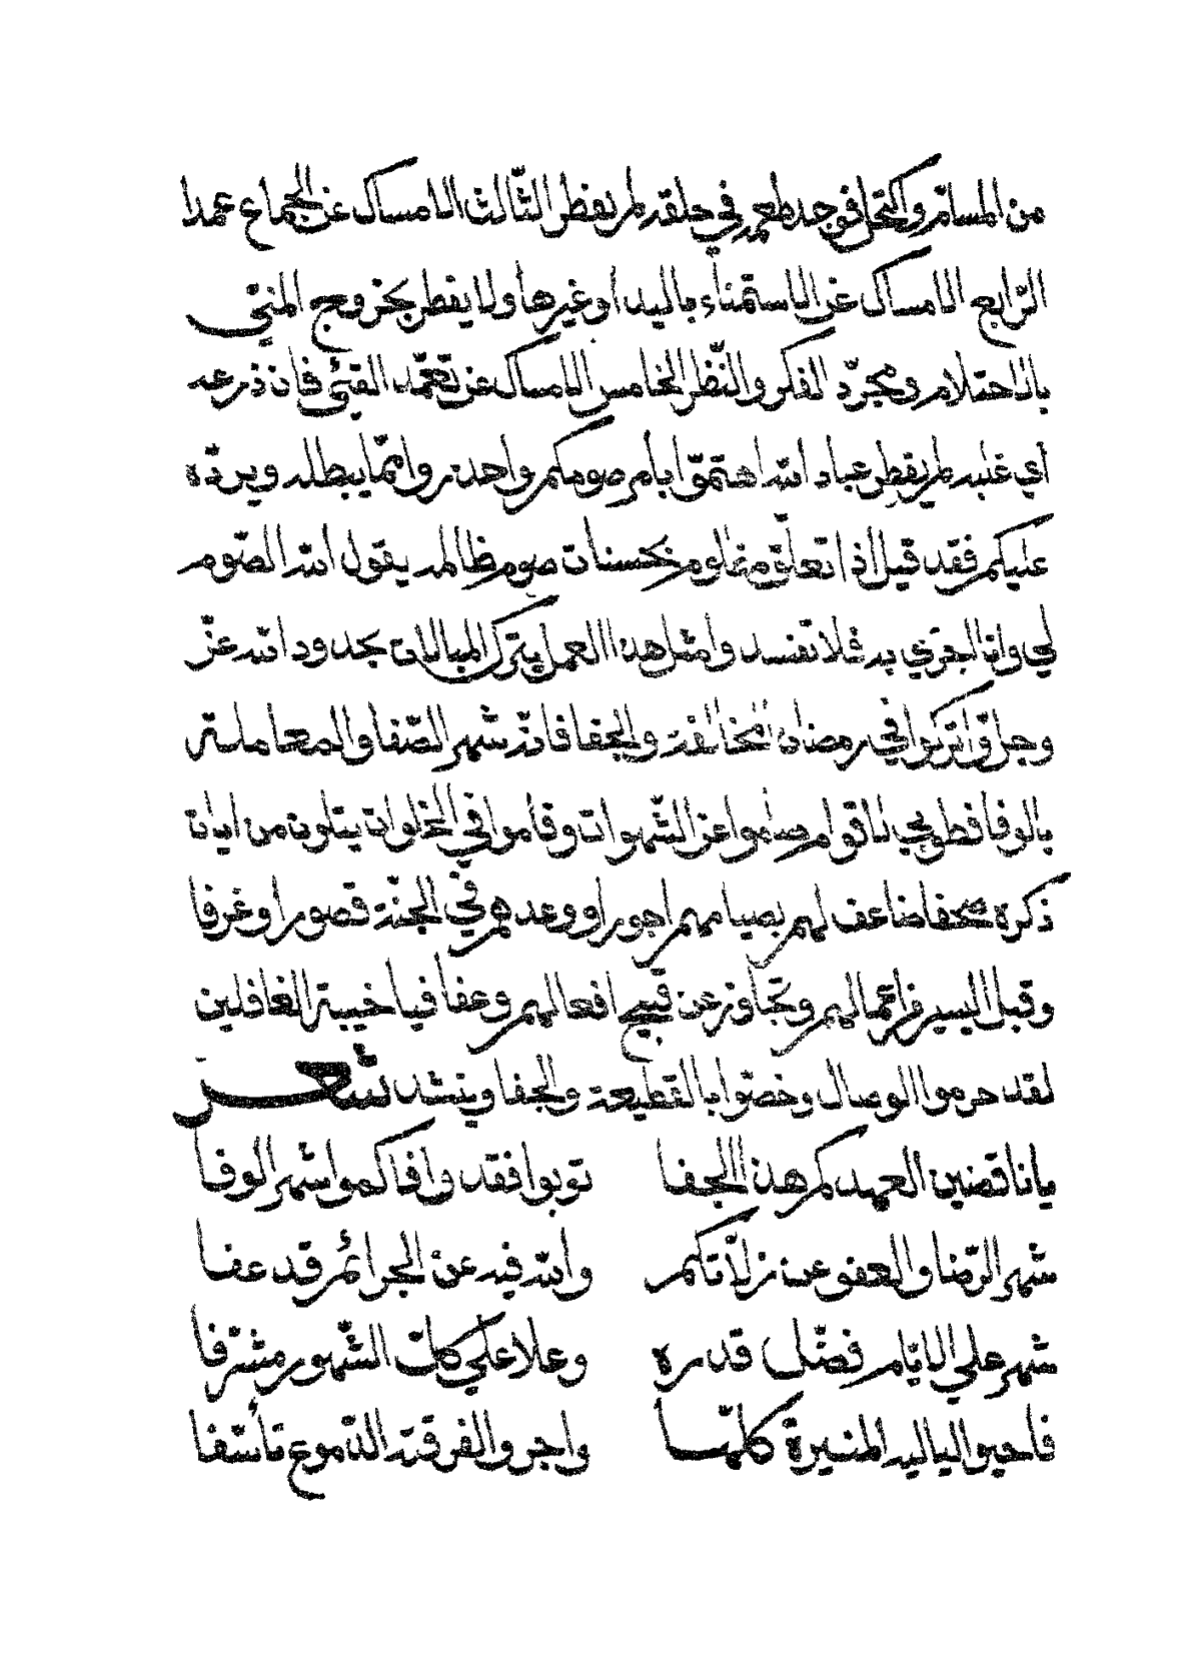 من المسامّ واكتحل فوجد طعمه في حلقه لم يفطر الثّالث الامساك عن الجماع عمدا
الرّابع الامساك عن الاستمناء باليد او غيرها ولا يفطر بخروج المنيّ
بالاحتلام ومجرّد الفكر والنّظر الخامس الامساك عن تعمّد القيئ فان ذرعه
أي غلبه لم يفطر عباد الله اهتمّوا بأمر صومكم واحذروا ممّا يبطله ويردّه
عليكم فقد قيل اذا تعلّق مظلوم بحسنات صوم ظالمه يقول الله الصّوم
لي وانا اجزي به فلا تفسدوا مثل هذا العمل بترك المبالات بحدود الله عزّ
وجلّ واتركوا في رمضان المخالفة والجفا فانّه شهر الصّفا والمعاملة
بالوفا فطوبي لاقوام صاموا عن الشّهوات وقاموا في الخلوات يتلون من ايات
ذكره صحفا ضاعف لهم بصيامهم اجورا ووعدهم في الجنّة قصورا وغرفا
وقبل اليسير من اعمالهم وتجاوز عن قبيح افعالهم وعفا فيا خيبة الغافلين
لقد حرموا الوصال وخصّوا بالقطيعة والجفا وينشد شعر
يا ناقضين العهد كم هذا الجفا توبوا فقد وافاكموا شهر الوفا
شهر الرّضا والعفو عن زلّاتكم والله فيه عن الجرائم قد عفا
شهر علي الايّام فضّل قدره وعلا علي كلّ الشّهور مشرّفا
فاحيوا لياليه المنيرة كلّها واجروا لفرقته الدّموع تأسّفا